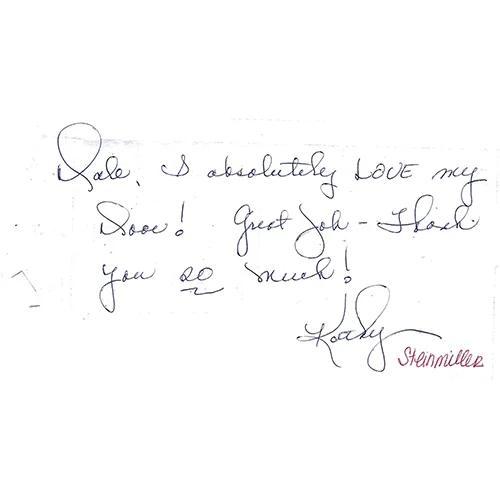 Dale, I absolutely LOVE my
Door! Great Job - Thank
you so much!
Kathy
Steinmiller